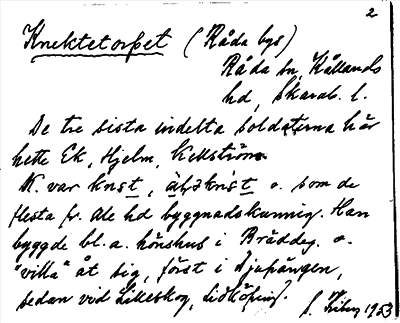 2
Knektetorpet (Råda bys)
Råda sn, Kållands
hd, Skarab. l.
De tre sista indelta soldaterna här
hette Ek, Hjelm, Kellström.
K. var konst, o. som de
flesta fr. Ale hd byggnadskunnig. Han
byggde bl.a. hönshus i Bräddeg. o.
"villa" åt sig, först i Djupängen,
sedan vid Lilleskog, Lidköping.
1953